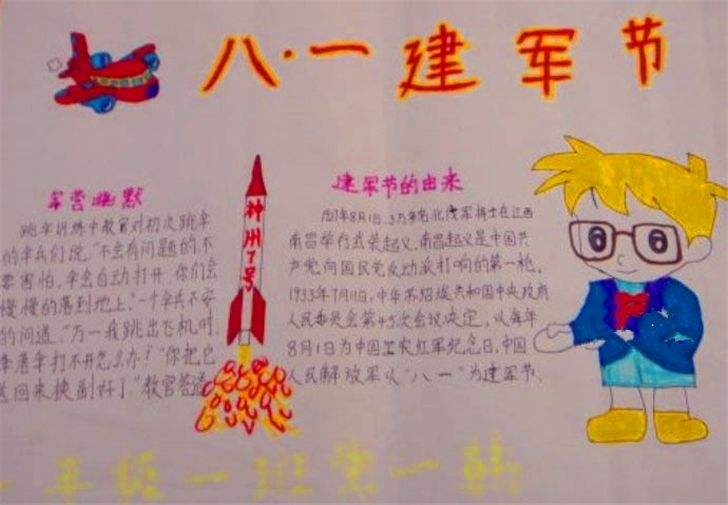 八·一建军节
军营幽默
跳伞训练中教官对初次跳伞
的伞兵们说,"不会有问题的不
要害怕,伞会自动打开,你们会
慢慢的落到地上。"一个伞兵不安
的问道,"万一我跳出飞机时,
降落伞打不开怎么办?""你把它
送回来换副好了"教官答道
神州7号
建军节的由来
1927年8月1日,3万多名北伐军将士在江西
南昌举行武装起义,南昌起义是中国共
产党向国民党反动派打响的第一枪。
1933年7月11日,中华苏维埃共和国中央政府
人民委员会第45次会议决定,以每年
8月1日为中国工农红军纪念日,中国
人民解放军以"八一"为建军节.
年级一班第一